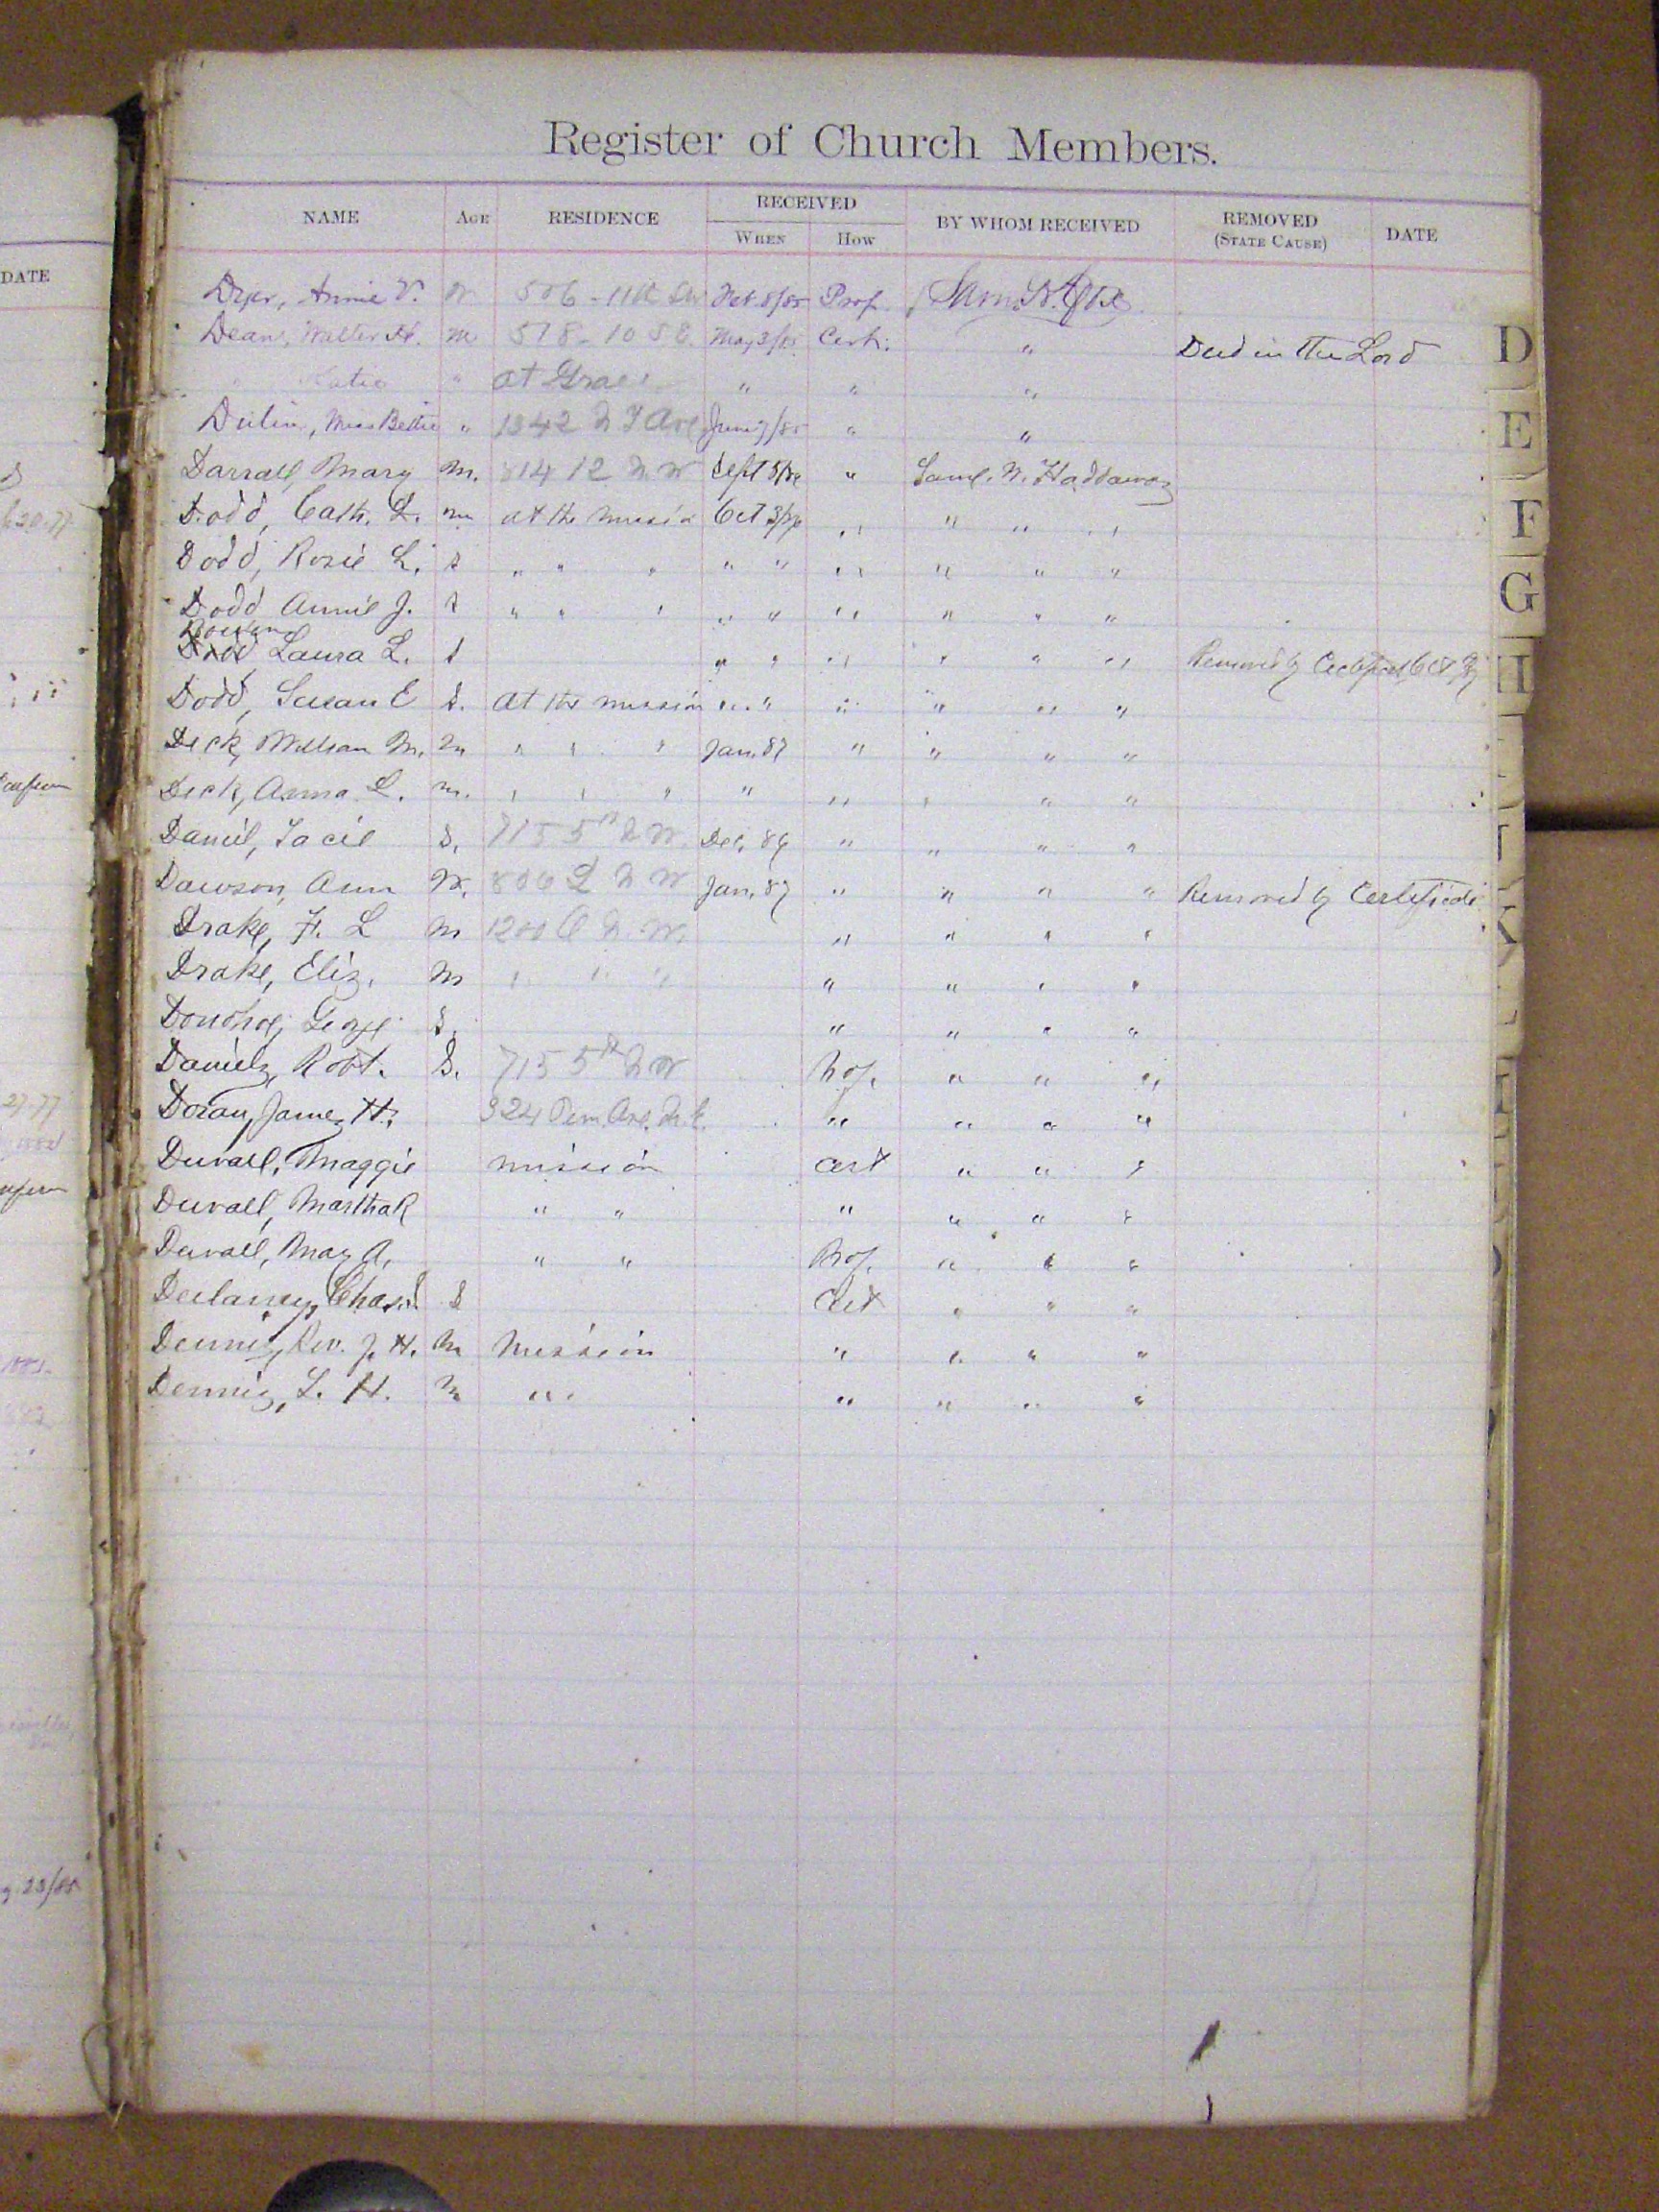 Register of Church Members.
NAME AGE RESIDENCE RECEIVED WHEN HOW BY WHOM RECEIVED REMOVED (STATE CAUSE) DATE
DATE
Dyer, Annie V. W 506 - 11th Feb 8/85 Prof.
Dean, Walter H. m 518 - 10 S E. May 3/85 Certi. " Died in the Lord
" Katie " at Grace " " "
Dulin, Miss Bettie " 1342 N Y Ave June 7/85 " "
Darrall, Mary M. 814 12 N W Sept 5/86 " Saml. N. Haddaway
Dodd, Cath. L. m at the missio Oct 3/86 " " " "
Dodd, Rosie L. s " " " " " " " " "
Dodd Annie J. s " " " " " " " " "
Dodd, Laura L. s " " " " " " Removed by Certificate Oct
Dodd, Susan E S. at the mission " " " " " "
Deck, William M. m " " " Jan. 87 " " " "
Deck, Anna L. m. " " " " " " " "
Daniel, Jacie S. 715 5th N W. Dec. 86 " " " "
Dawson, Ann W. 806 L N W Jan. 87 " " " " Removed by Certificate
Drake, F. L m 1200 C N. W. " " " "
Drake, Eliz. m " " " " " " "
Donohoe, George S. " " " "
Daniels, Robt. S. 715 5th N W Prof. " " "
Doran, James H. 324 Penn Ave. S.E. " " " "
Duvall, Maggie mission Cert " " "
Duvall, Martha R " " " " " "
Duvall, May A. " " Prof. " " "
Delaney, Chas. S Cert " " "
Dennis, Rev. J. H. m Mission " " " "
Dennis, L. H. m " " " " " "
D
E
F
G
H
I
K
23/85